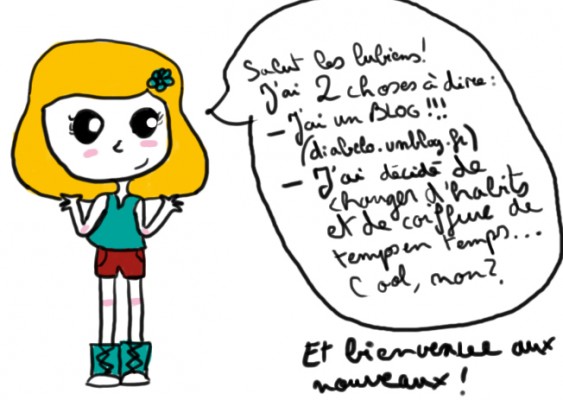 Salut les lubiens!
J'ai 2 choses à dire:
- J'ai un BLOG !!!
(diabelo.unblog.fr)
- J'ai décidé de
changer d'habits
et de coiffure de
temps en temps...
Cool, non?
Et bienvenue aux
nouveaux !